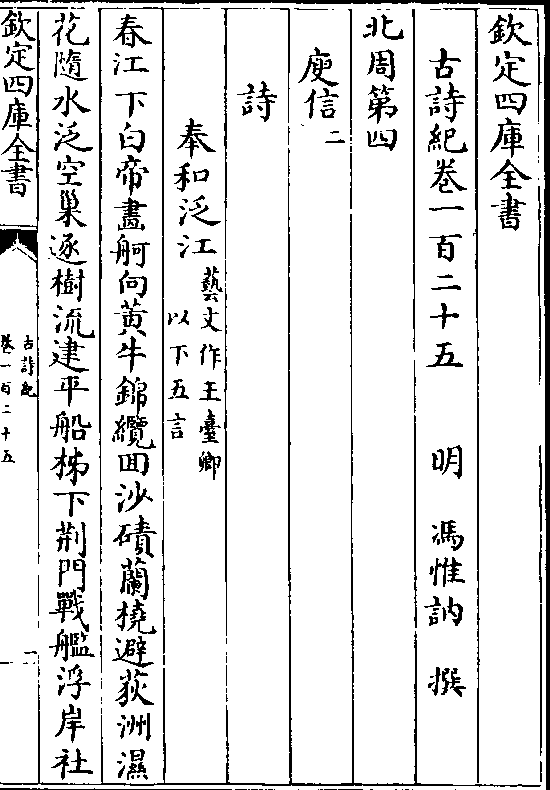 欽定四庫全書
古詩紀卷一百二十五　明　馮惟訥　撰
北周第四
庾信二
詩
奉和泛江藝文作王臺卿
以下五言
春江下白帝畫舸向黄牛錦纜回沙磧蘭橈避荻洲濕
花隨水泛空巢逐樹流建平船柹下荆門戰艦浮岸社
欽定四庫全書
古詩紀
卷一百二十五
一